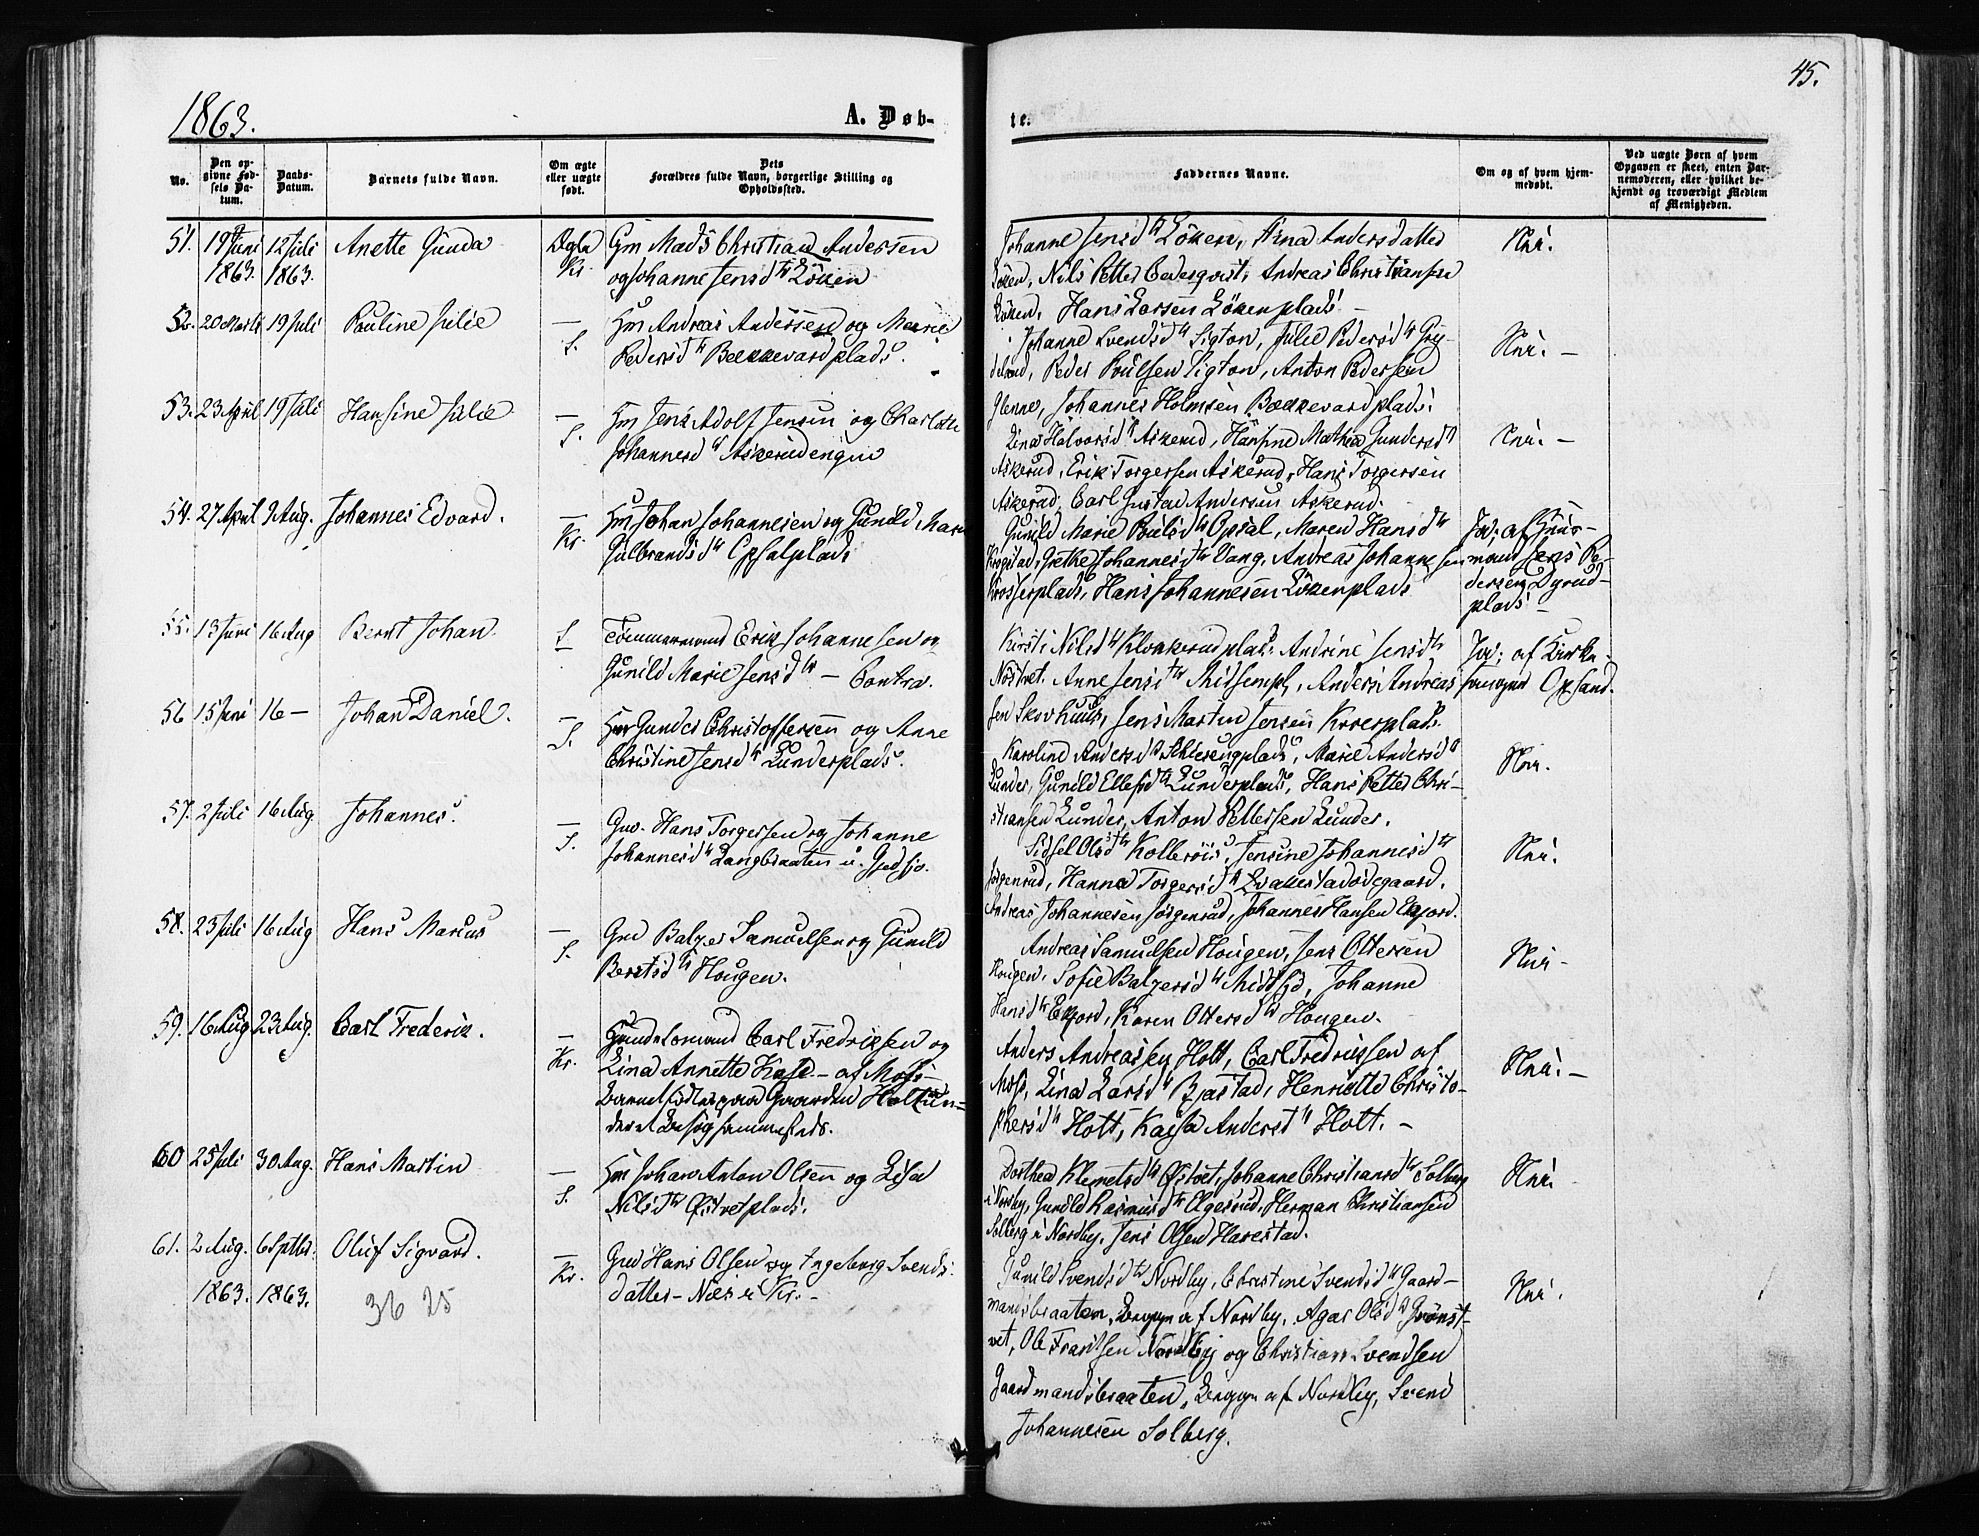 1863.
A. Døb-
No.
Den op-
givne Fød-
sels Da-
tum.
Daabs-
Datum.
Barnets fulde Navn.
Om ægte
eller uægte
født.
Dets
Forældres fulde Navn, borgerlige Stilling og
Opholdssted.
51. 19 Juni 12 Juli Anette Gunda Gm Mads Christian Andersen
1863. 1863. Kr. og Johanne Jensd tr Löken
52. 20 Marts 19 Juli Pauline Julie — Hm Andreas Andersen og Marie
S. Pedersd tr Bækkevardplads.
53. 23 April 19 Juli Hansine Julie — Hm Jens Adolf Jensen og Charlotte
S. Johannesd tr Askerudengen
54. 27 April 9 Aug. Johannes Edvard. — Hm Johan Johannesen og Gunild Marie
Kr. Gulbrandsd tr Opsalplads
55. 13 Juni 16 Aug Bernt Johan. S. Tömmermand Erik Johannesen og
— Gunild Marie Jensd tr — Contra.
56 15 Juni 16 — Johan Daniel. — Hm Gunder Christoffersen og Anne
S. Christine Jensd tr Lunderplads.
57. 2 Juli 16 Aug Johannes. — Hans Torgersen og Johanne
S. Johannesd tr Langbraaten u. Gjedsjø.
58. 23 Juli 16 Aug Hans Marius — Gm Balzer Samuelsen og Gunild
S. Berntsd tr Hougen.
59. 16 Aug 23 Aug. Carl Frederik. — Carl Fredriksen og
Kr. Lina Annette — af Moss —
Barnet født paa Gaarden Holt un-
der et Besøg sammesteds.
60 25 Juli 30 Aug. Hans Martin — Hm Johan Anton Olsen og Lisa
S. Nilsd tr Østvetplads.
61. 2 Aug. 6 Septbr. Oluf Sigvard. — Gm Hans Olsen og Ingeborg Svends-
Kr. datter — Næs i Kr. —
1863. 1863.
36 25
45.
te.
Faddernes Navne.
Om og af hvem hjem-
medøbt.
Ved uægte Børn af hvem
Opgaven er skeet, enten Bar-
nemoderen, eller hvilket be-
kjendt og troværdigt Medlem
af Menigheden.
Johanne Jensd tr Löken, Anna Andersdatter Nei.
Löken, Nils Petter Cederqvist, Andreas Christiansen
Löken, Hans Larsen Lökenplads. —
Johanne Svendsd tr Sigton, Julie Pedersd tr Gry- Nei. —
deland, Peder Poulsen Sigton, Anton Pedersen
Glenne, Johannes Holmsen Bækkevardplads.
Lina Halvorsd tr Askerud, Hansine Mathea Gundersd tr Nei. —
Askerud, Erik Torgersen Askerud, Hans Torgersen
Askerud, Carl Gustav Andersen Askerud.
Gunild Marie Poulsd tr Opsal, Maren Hansd tr Ja; af Huus-
Krogstad, Grethe Johannesd tr Vang, Andreas Johannesen mand Jens Pe-
Krosserplads, Hans Johannesen Lökenplads dersen Dyrud-
plads. —
Kirsti Nilsd tr Klokkerudplads. Andrine Jensd tr Ja; af Kirke-
Nöstvet. Anne Jensd tr Midsempl, Anders Andreas- sanger Opsand.
sen Skovhuus, Jens Martin Jensen Kroerplads.
Karoline Andersd tr, Marie Andersd tr Nei.
Lunder, Gunild Ellefsd tr Lunderplads, Hans Petter Chri-
stiansen Lunder, Anton Pettersen Lunder.
Sidsel Olsd tr Kolleröis, Jensine Johannesd tr Nei.
Jörgenrud, Hanna Torgersd tr Kvakestadödegaard.
Andreas Johannesen Jörgenrud, Johannes Hansen Ekjord.
Andreas Samuelsen Hougen, Jens Ottersen Nei —
Hougen. Sofie Balzersd tr Midsjø, Johanne
Hansd tr Ekjord, Karen Ottersd tr Hougen.
Anders Andreassen Holt, Carl Fredriksen af Nei. —
Moss, Lina Larsd tr Bjastad, Henriette Christo-
phersd tr Holt, Kaisa Andersd tr Holt. —
Dorthea Klemetsd tr Østvet, Johanne Christiansd tr Solberg Nei.
i Nordby, Gunild Rasmusd tr Elgesrud, Herman Christiansen
Solberg i Nordby, Jens Olsen Harestad.
Gunild Svendsd tr Nordby, Christine Svendsd tr Gaard- Nei.
mandsbraaten, af Nordby, Agar Olsd tr Grönst-
vet, Ole Frantsen Nordby og Christian Svendsen
Gaardmandsbraaten, af Nordby, Svend
Johannesen Solberg.